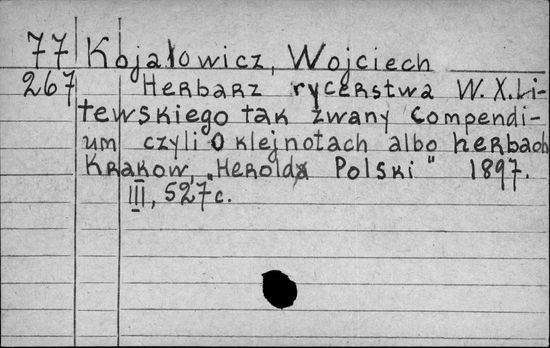 77 Kojałowicz, Wojciech
267 Herbarz rycerstwa W. X. Li-
tewskiego tak zwany Compendi-
um czyli O klejnotach albo herbach
Krakow, „Herold Polski" 1897.
III, 527 c.